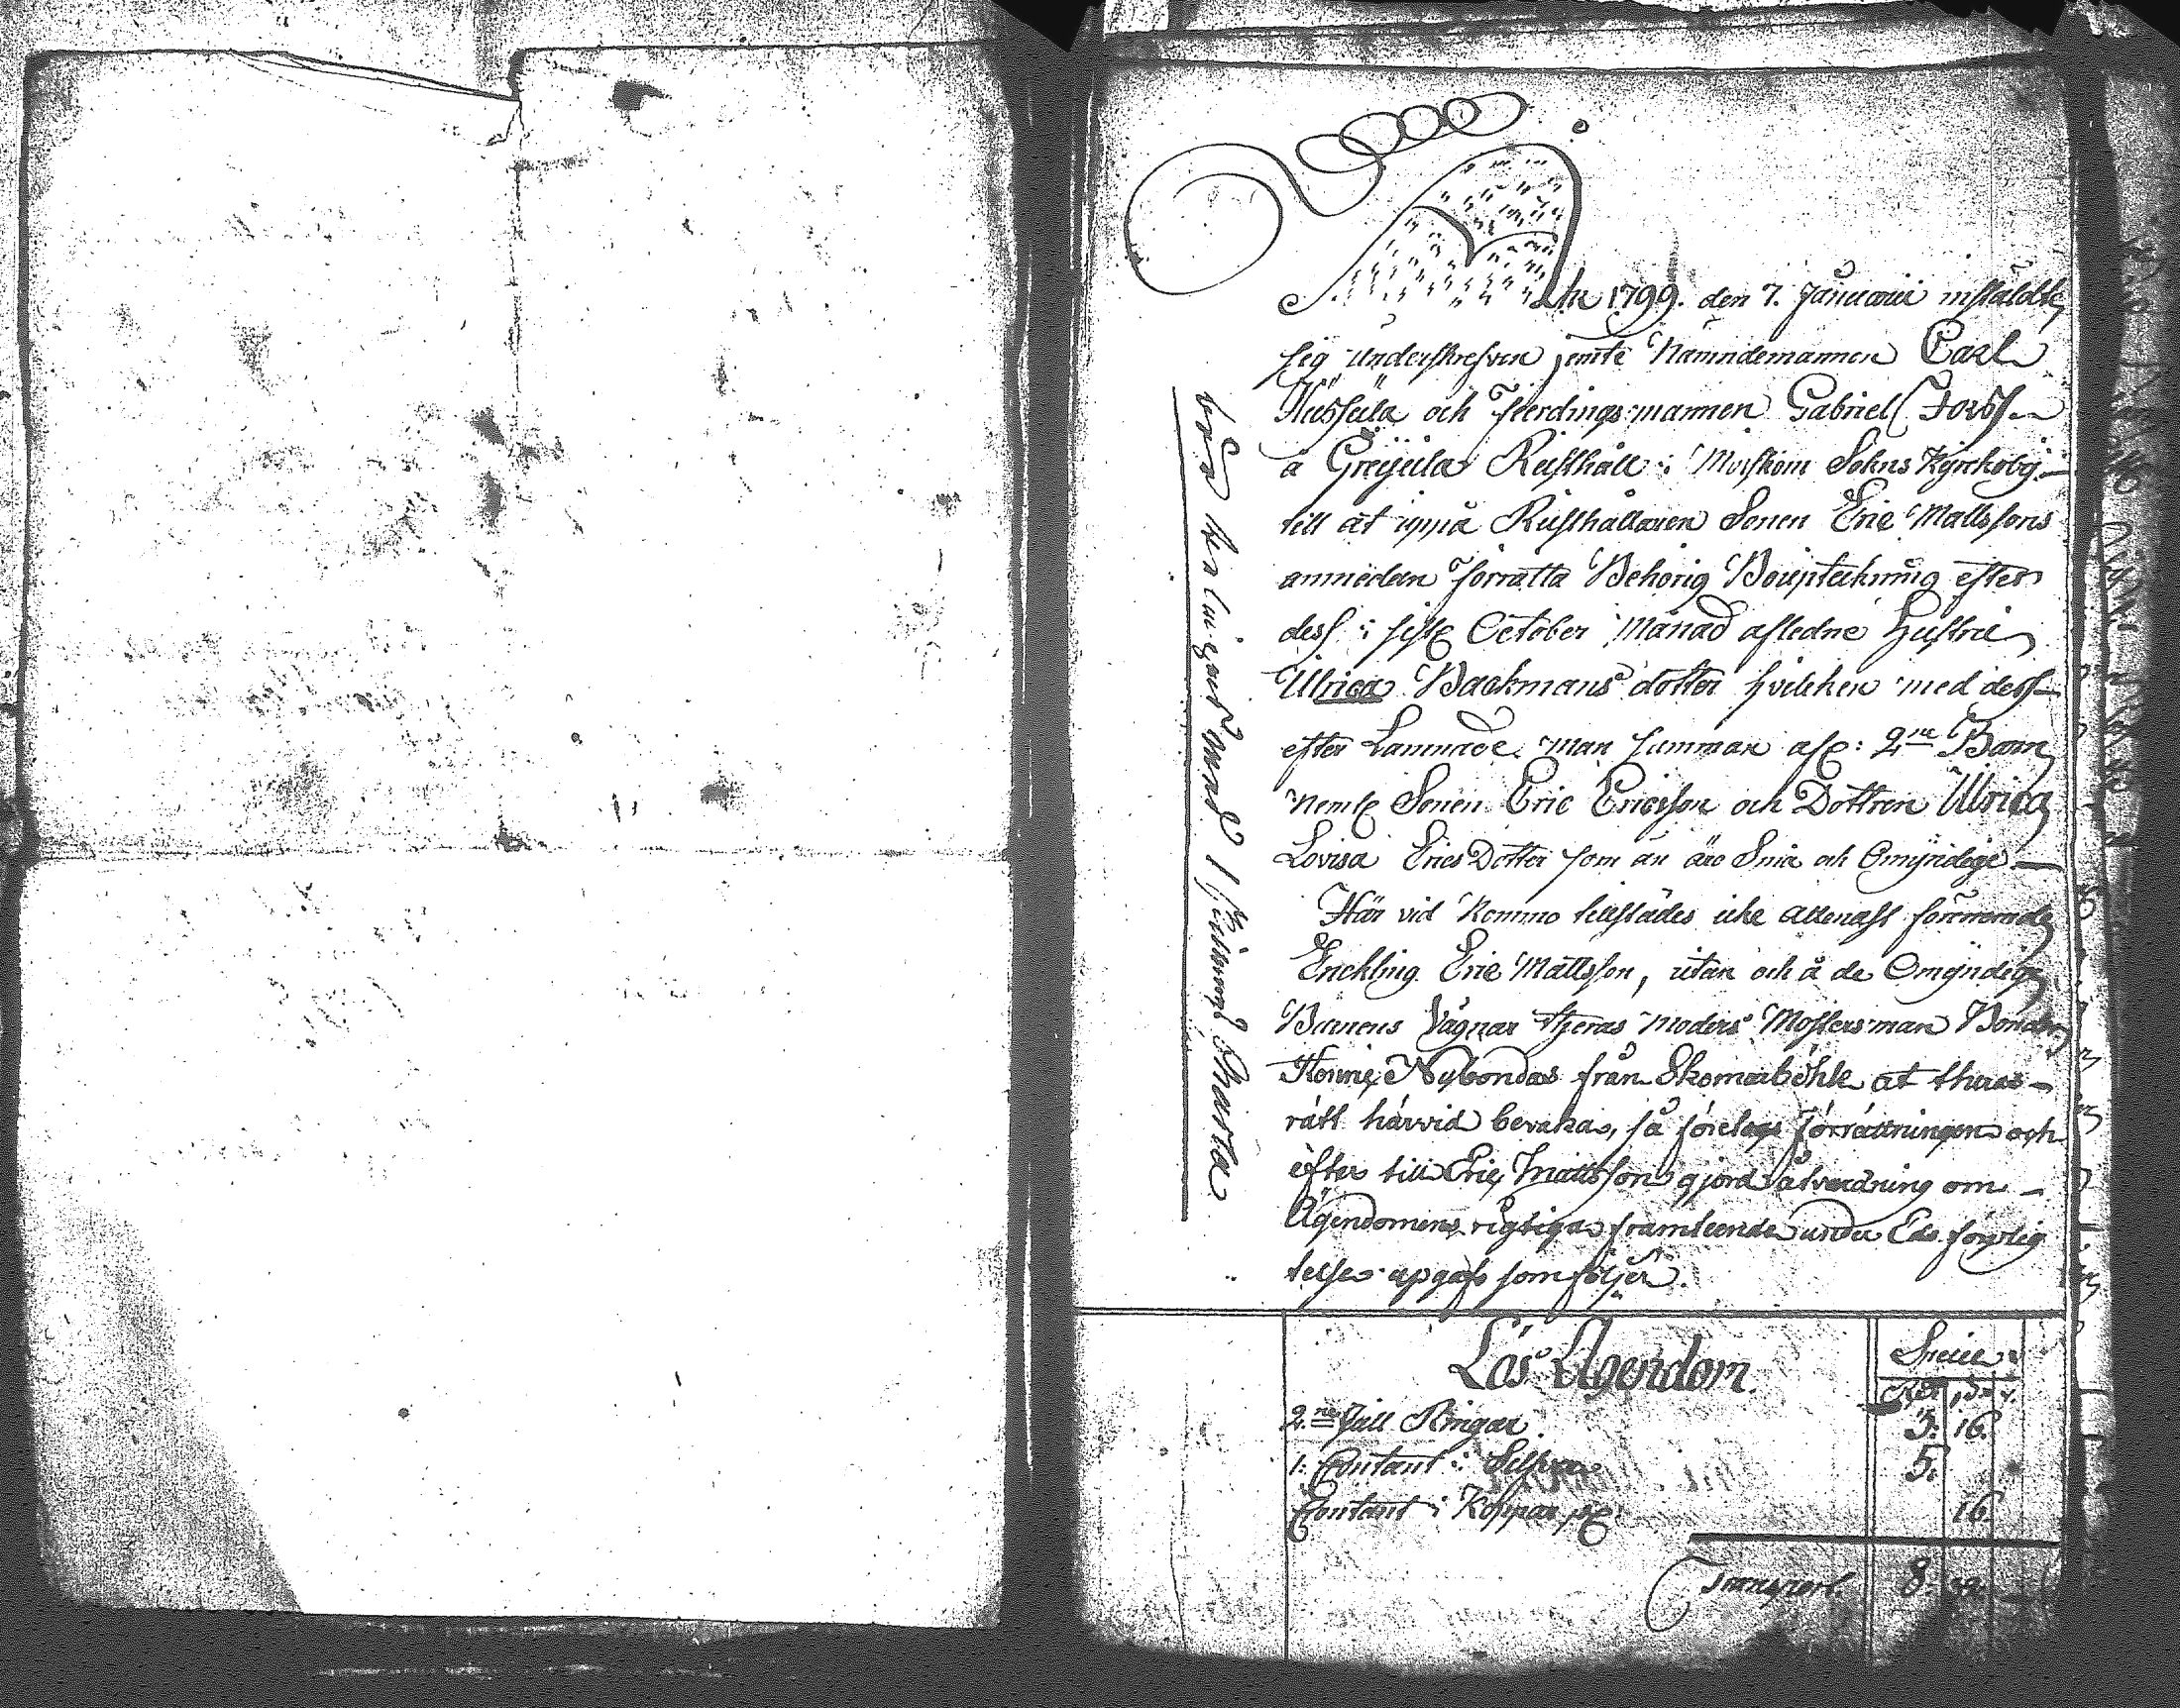 Åhr 1799. den 7. Januarii instäldte
sig underskrefven jemte Nämndemannen Carl
och Fierdingsmannen Gabriel Forss
å Greijula Rusthåll i Mörskom Sokns Kyrckobÿ
till at uppå Rusthållaren Sonen Eric Mattssons
anmodan förrätta Behörig Bouptekning efter
dess i sistl October Månad afledne Hustru
Ulrica Backmans dotter hvilcken med dess
efter Lämnade man samman afl: 2ne Barn
neml Sonen Eric Ericsson och Dottren Ulrica
Lovisa Erics Dotter som än äro Små och Omÿndige
Här vid kommo tillstädes icke allenast förenemnde
Enckling Eric Mattsson, utan och å de Omÿndige
Barnens Vägnar theras Moders Mosters man Bonden
Nybondas från Skomarböhle at theras
rätt härvid bevaka, så förelogs förrättningen och
efter till Eric Mattsson gjord åtvardning om
Ägendomens rigtiga framteende under Eds förplig
telse upgafs som följer.
Lös Ägendom
Specie
Rdr s. r.
2ne Gull Ringar 3: 16.
1: Contant i Silfver 5:
Contant i Koppar pgr 16.
Transport 8. 32.